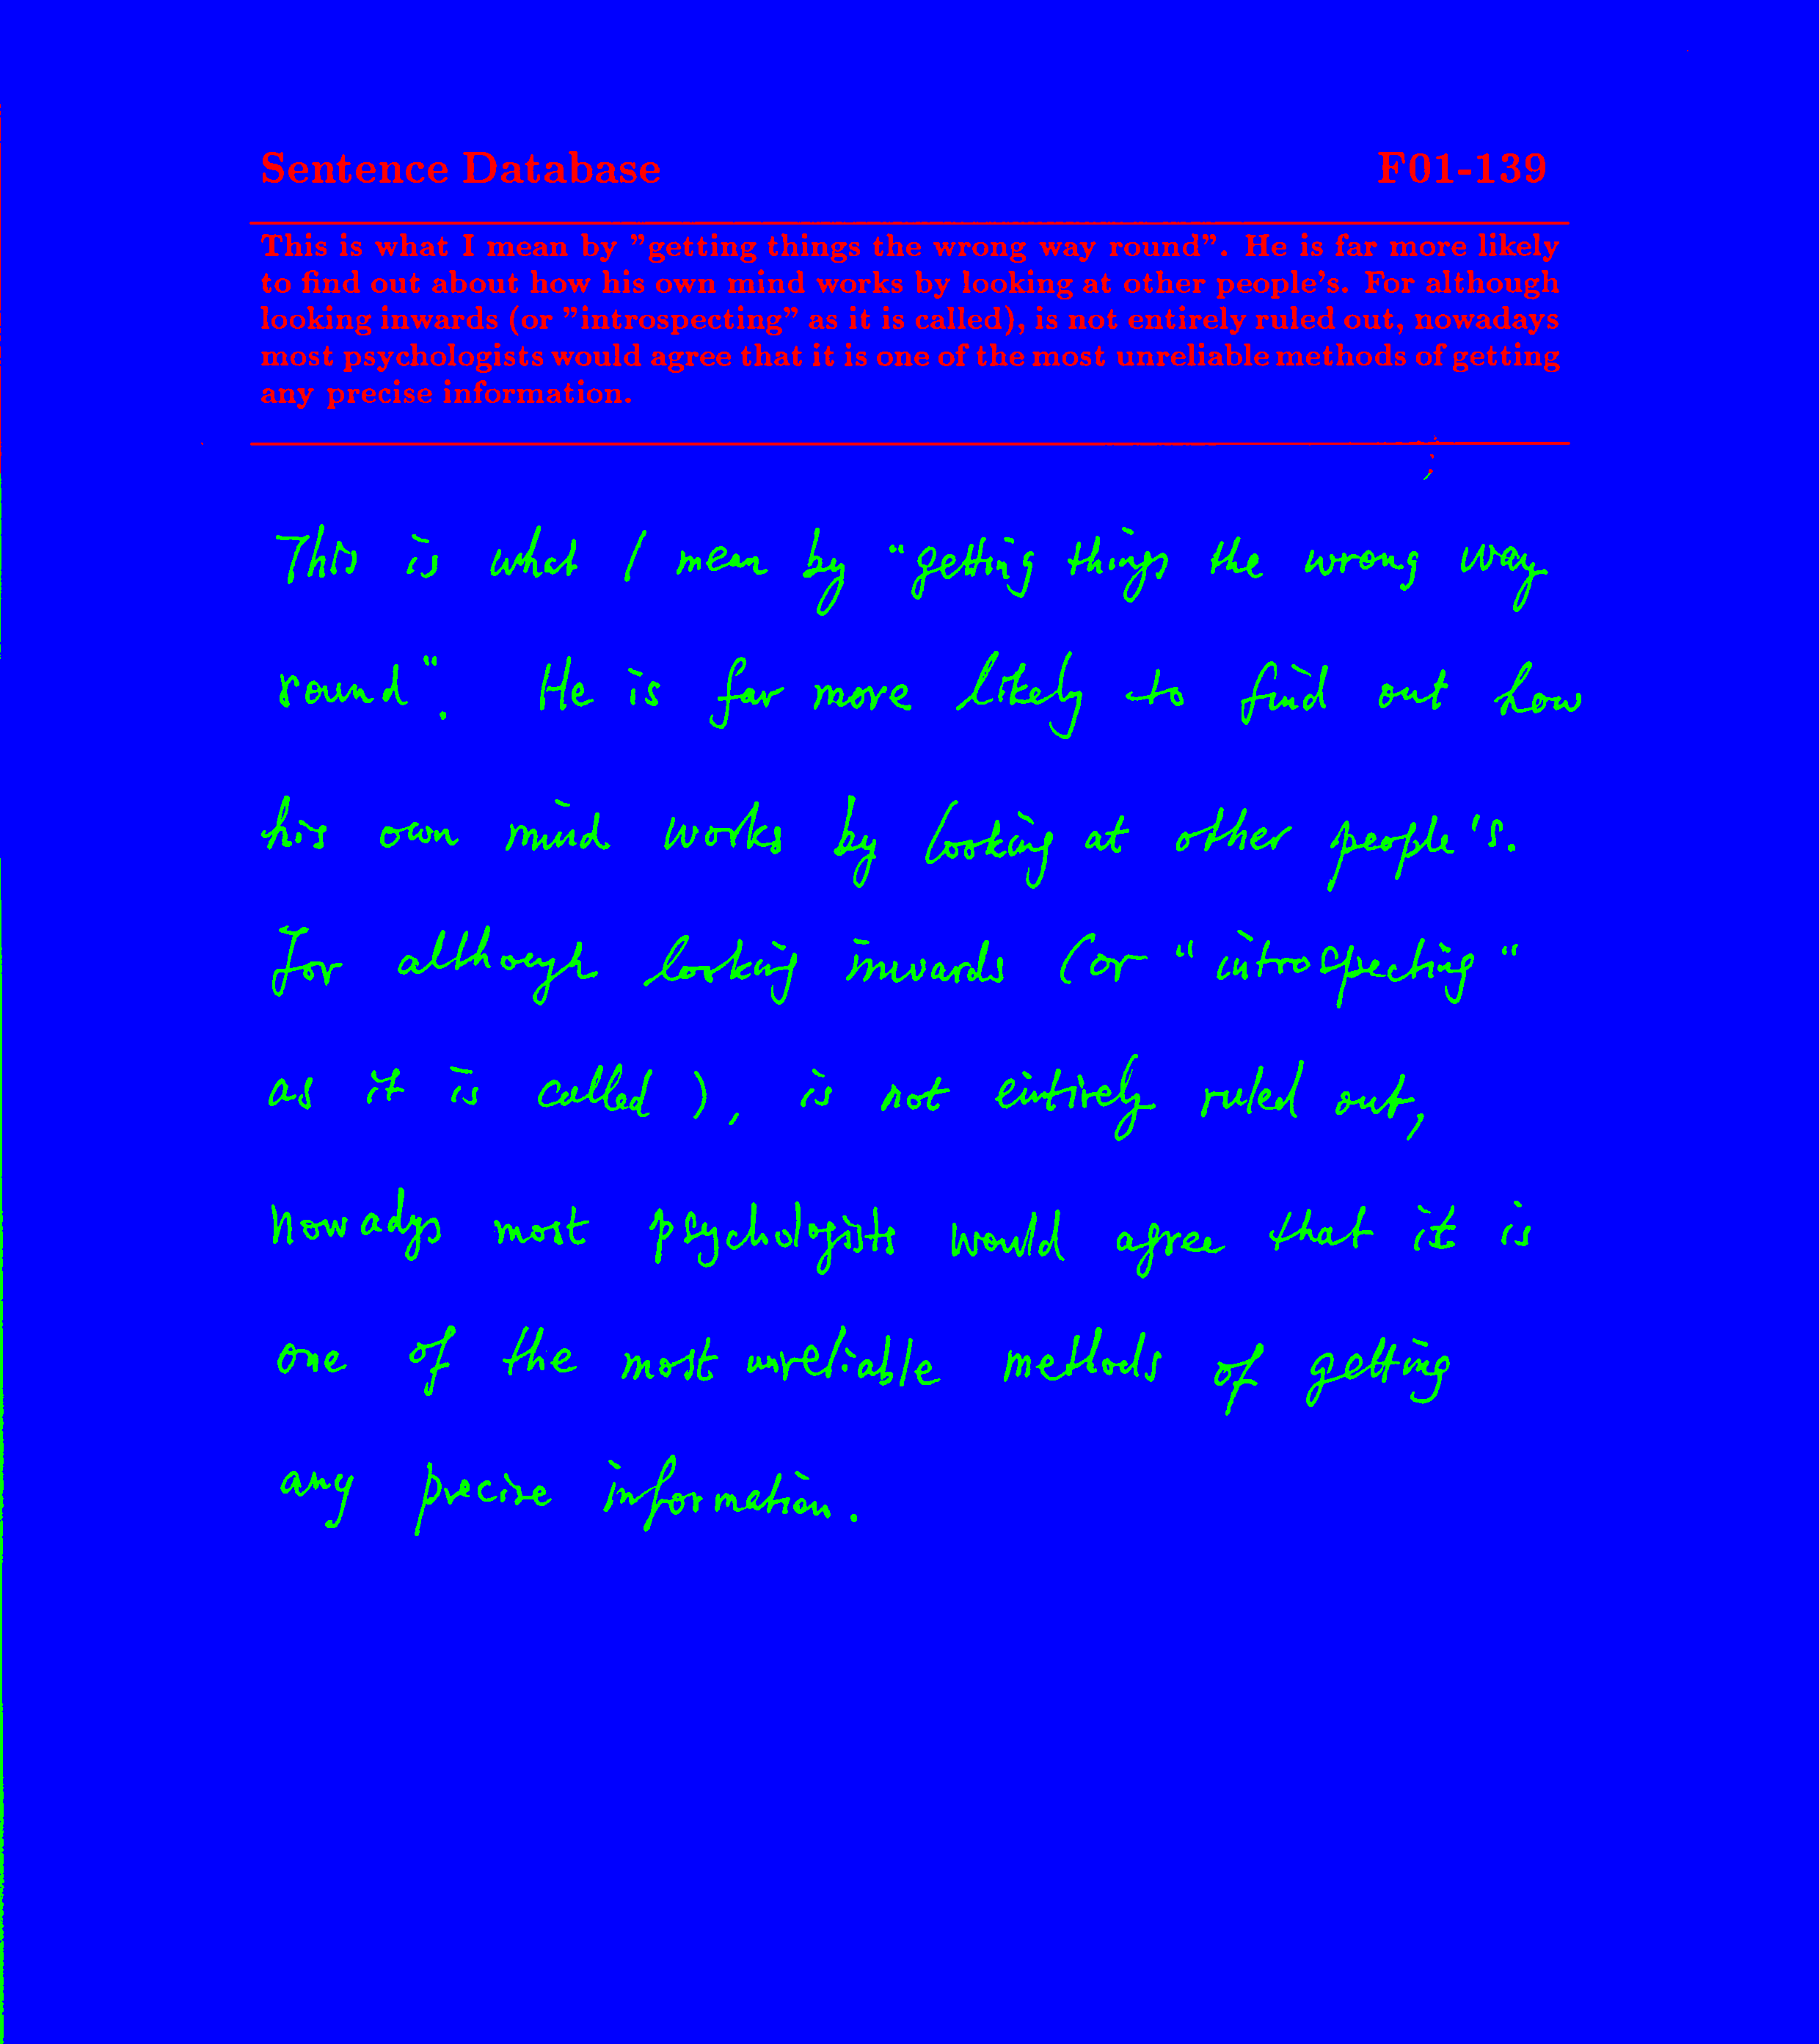 Sentence Database F01-139
This is what I mean by "getting things the wrong way round". He is far more likely
to find out about how his own mind works by looking at other people's. For although
looking inwards (or "introspecting" as it is called), is not entirely ruled out, nowadays
most psychologists would agree that it is one of the most unreliable methods of getting
any precise information.
This is what I mean by "getting things the wrong way
round". He is far more likely to find out how
his own mind works by looking at other people's.
For although looking inwards (or "introspecting"
as it is called), is not entirely ruled out,
nowadys most psychologists would agree that it is
one of the most unreliable methods of getting
any precise information.